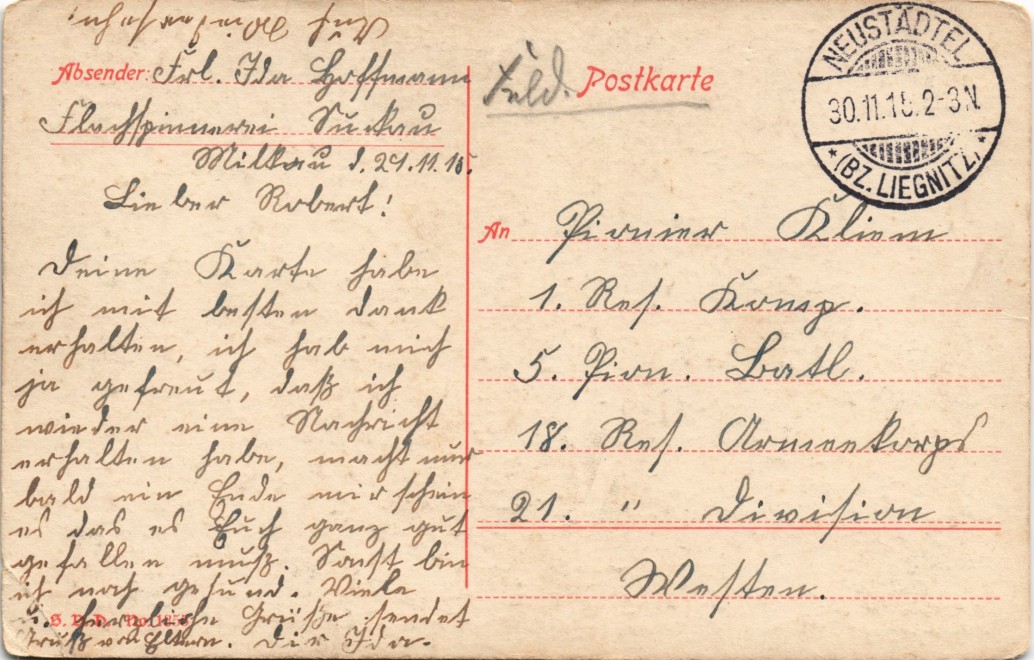 Auf Wiedersehn
Absender: Frl. Ida Hoffmann
Flachspinnerei Suckau
Milkau d. 29.11.15.
Lieber Robert!
Deine Karte habe
ich mit besten Dank
erhalten, ich hab mich
ja gefreut, daß ich
wieder eine Nachricht
erhalten habe, macht nur
bald ein Ende mir schein
es das es Euch ganz gut
gefallen muß. Sonst bin
ich noch gesund. Viele
u. herzliche Grüße sendet
Gruß von Eltern. Dir Ida.
S. B. D. No.
Feld. Postkarte
NEUSTÄDTEL
30.11.15. 2-3 N.
* (BZ. LIEGNITZ) *
An Pionier Kliem
1. Res. Komp.
5. Pion. Batl.
18. Res. Armeekorps
21. " Division
Westen.